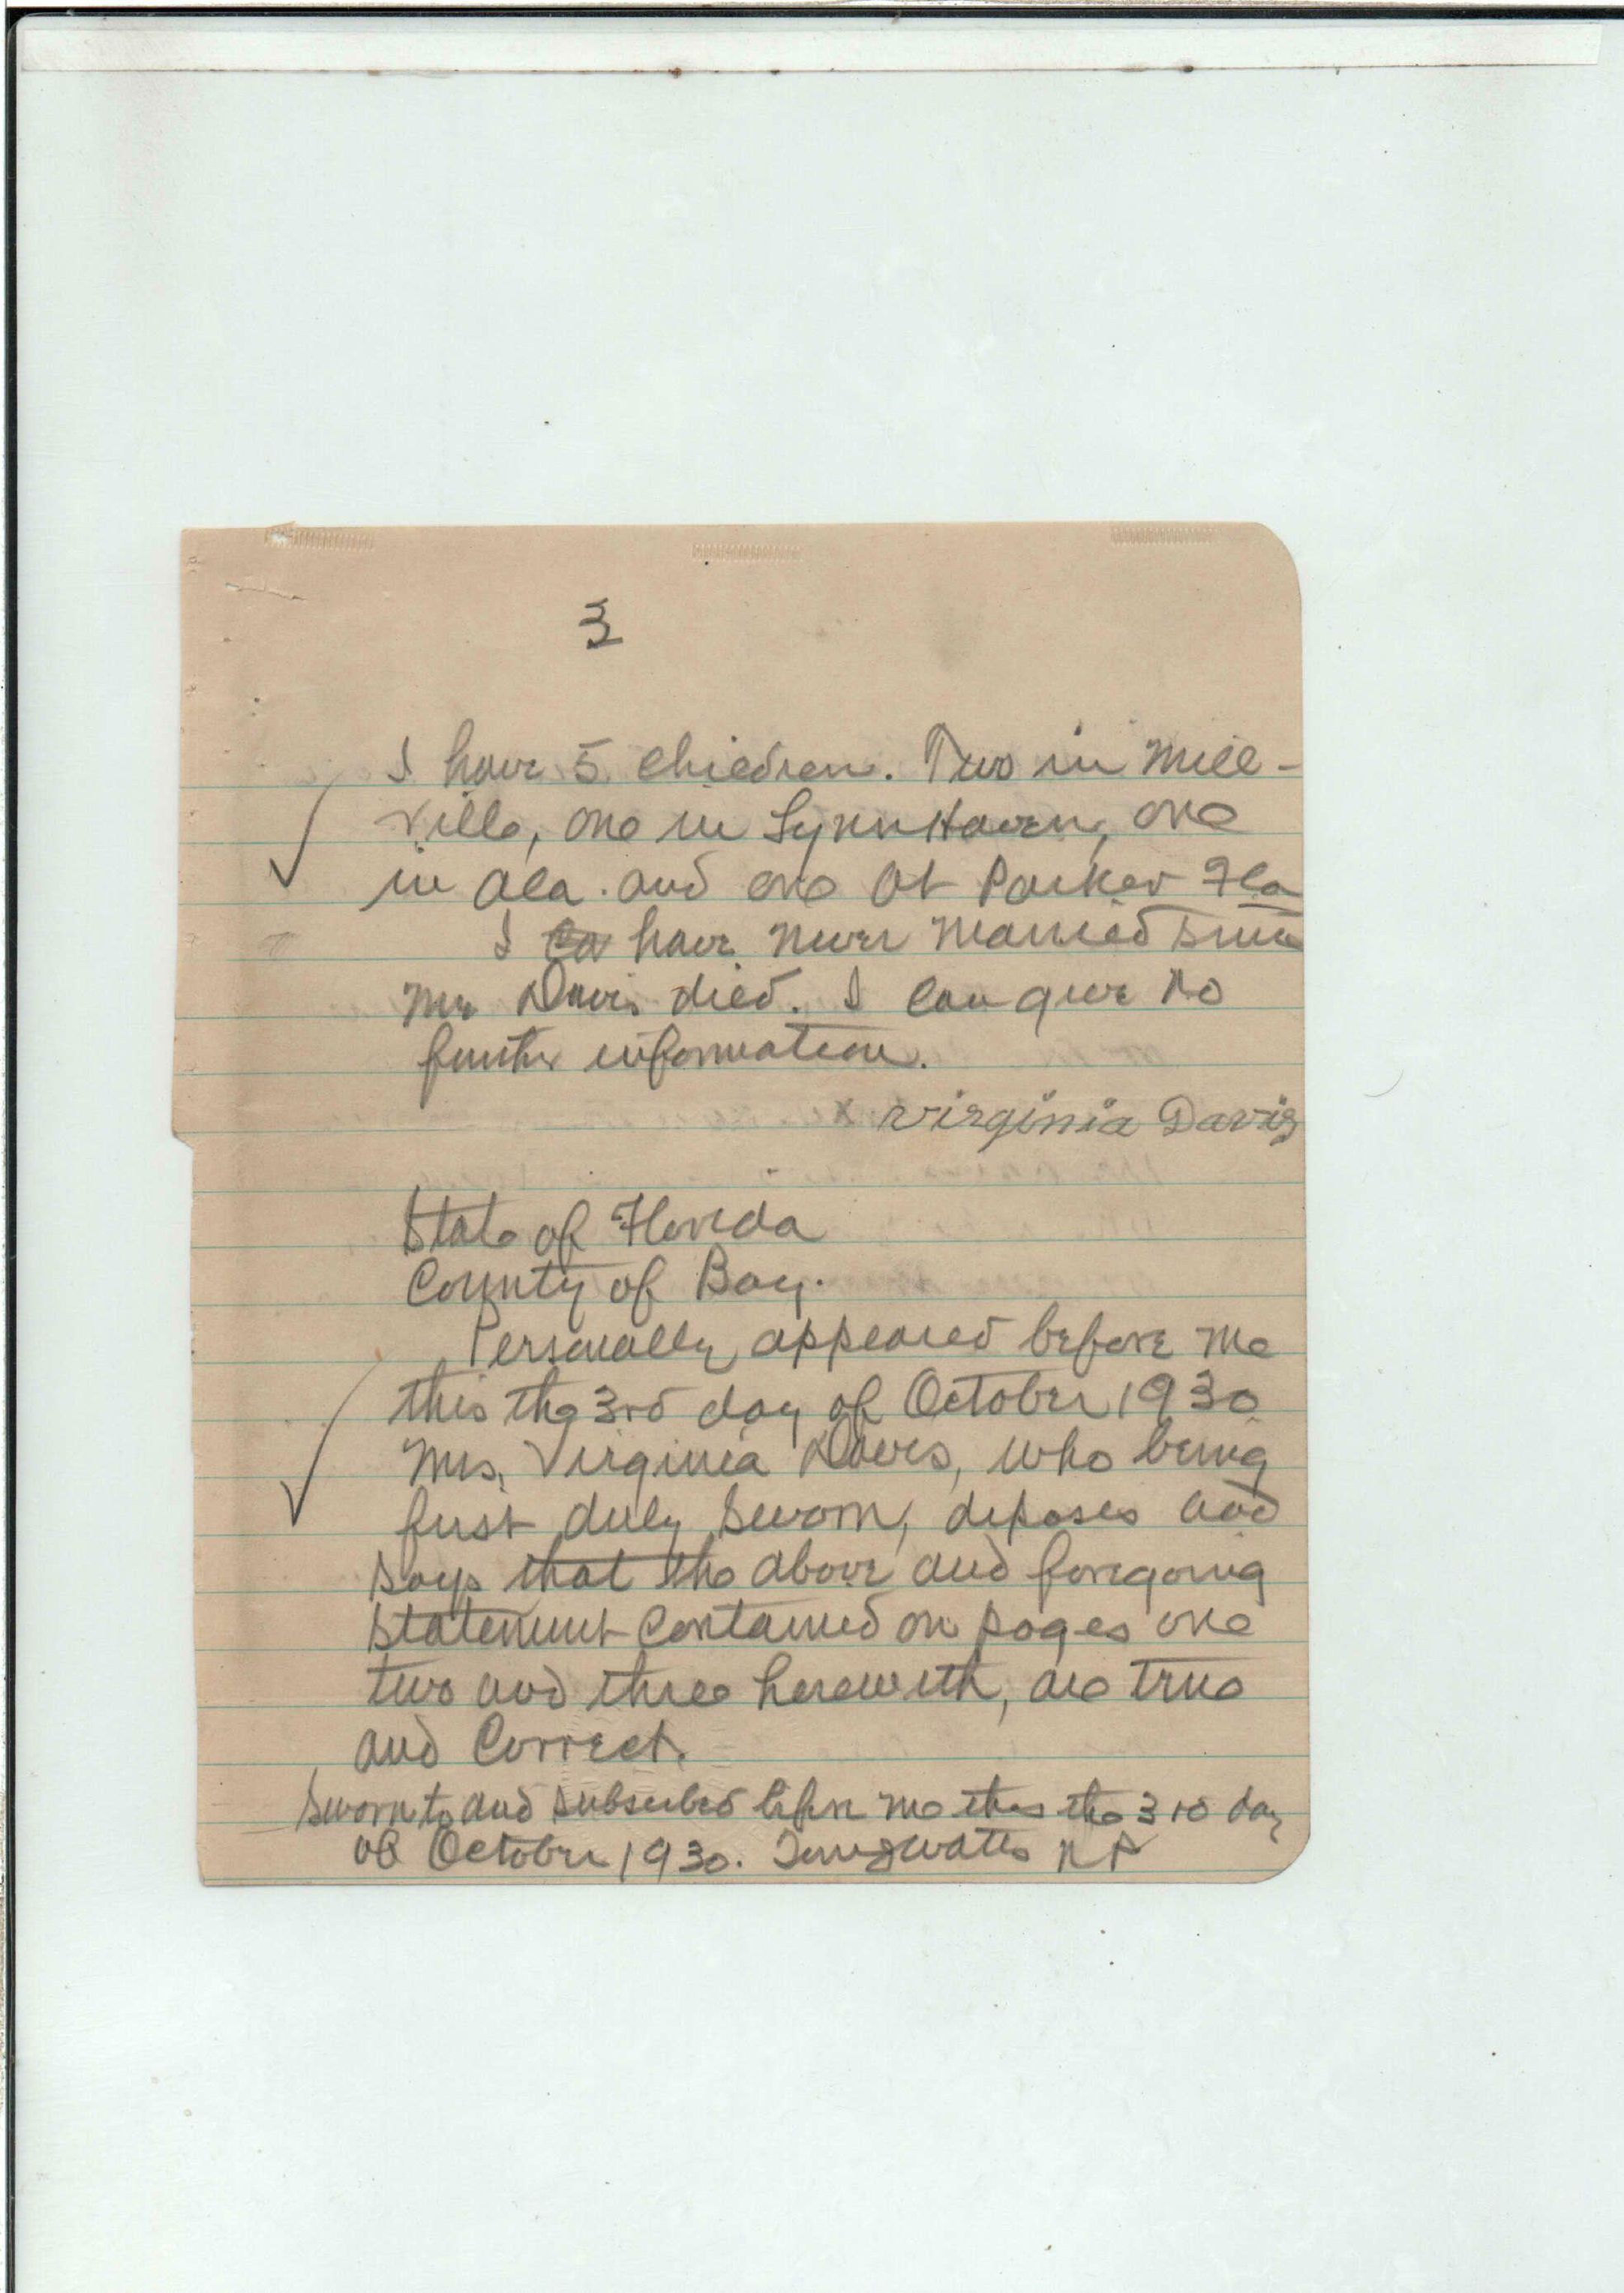 3
I have 5 children. Two in Mill-
ville, one in Lynn Haven, one
in Ala. and one at Parker Fla
I have never married since
Mr Davis died. I can give no
further information.
x Virginia Davis
State of Florida
County of Bay.
Personally appeared before me
this the 3rd day of October 1930
Mrs. Virginia Davis, who being
first duly sworn, deposes and
says that the above and foregoing
statement contained on pages one
two and three herewith, are true
and correct.
Sworn to and subscribed before me this the 3rd day
of October 1930. Watts N P